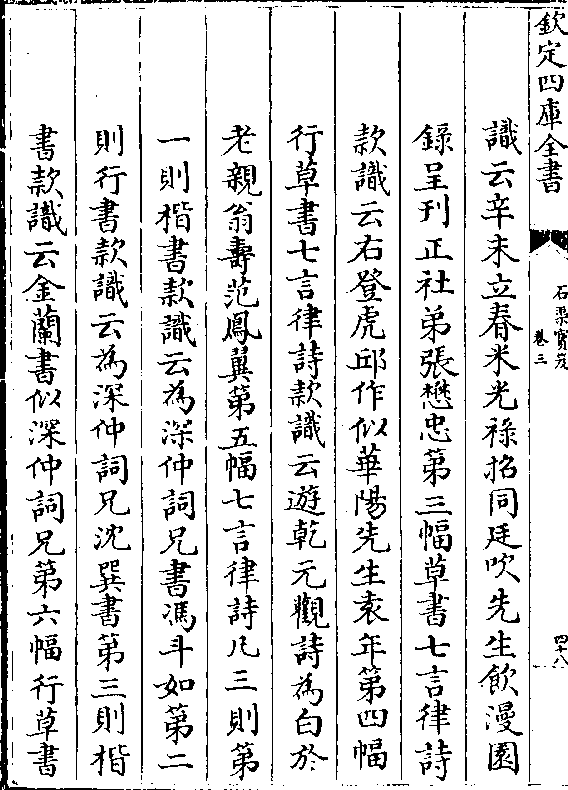 欽定四庫全書
石渠寳笈
卷三
四十八
識云辛未立春米光祿招同廷吹先生飲漫園
錄呈刋正社弟張懋忠第三幅草書七言律詩
款識云右登虎邱作似華陽先生袁年第四幅
行草書七言律詩款識云遊乾元觀詩為白於
老親翁壽范鳳翼第五幅七言律詩凡三則第
一則楷書款識云為深仲詞兄書馮斗如第二
則行書款識云為深仲詞兄沈巽書第三則楷
書款識云金蘭書似深仲詞兄第六幅行草書